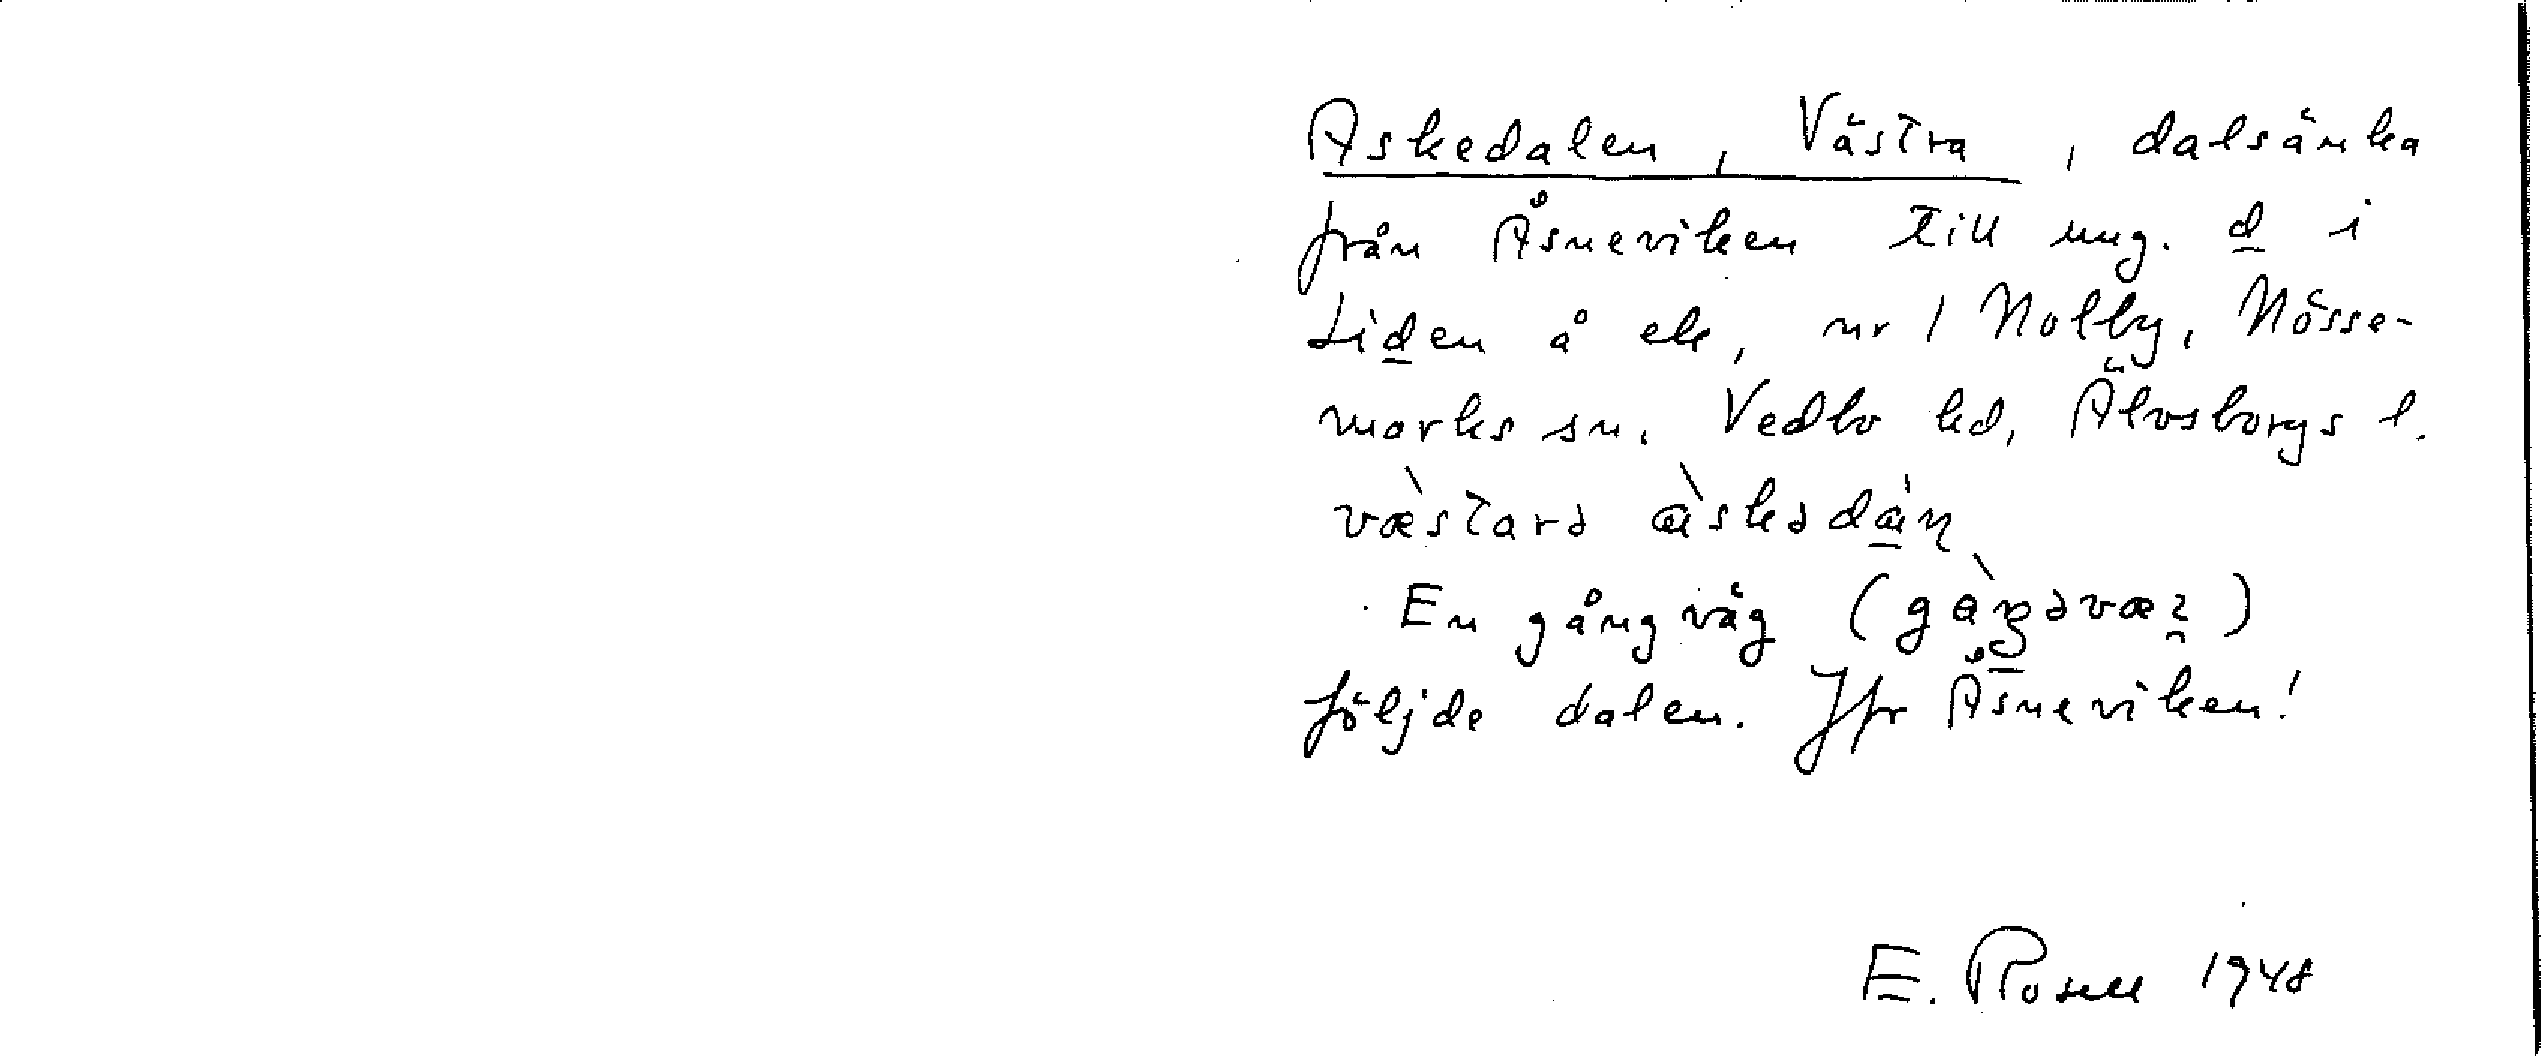 Askedalen, Västra, dalsänka
från Åsneviken till ung. d i
Liden å ek, nr 1 Nolby, Nösse-
marks sn. Vedbo hd, Älvsborgs l.
væ̀starə àskədáɳ
En gångväg (gàŋəvæ)
följde dalen. Jfr Åsneviken!
E. Rosell 1948